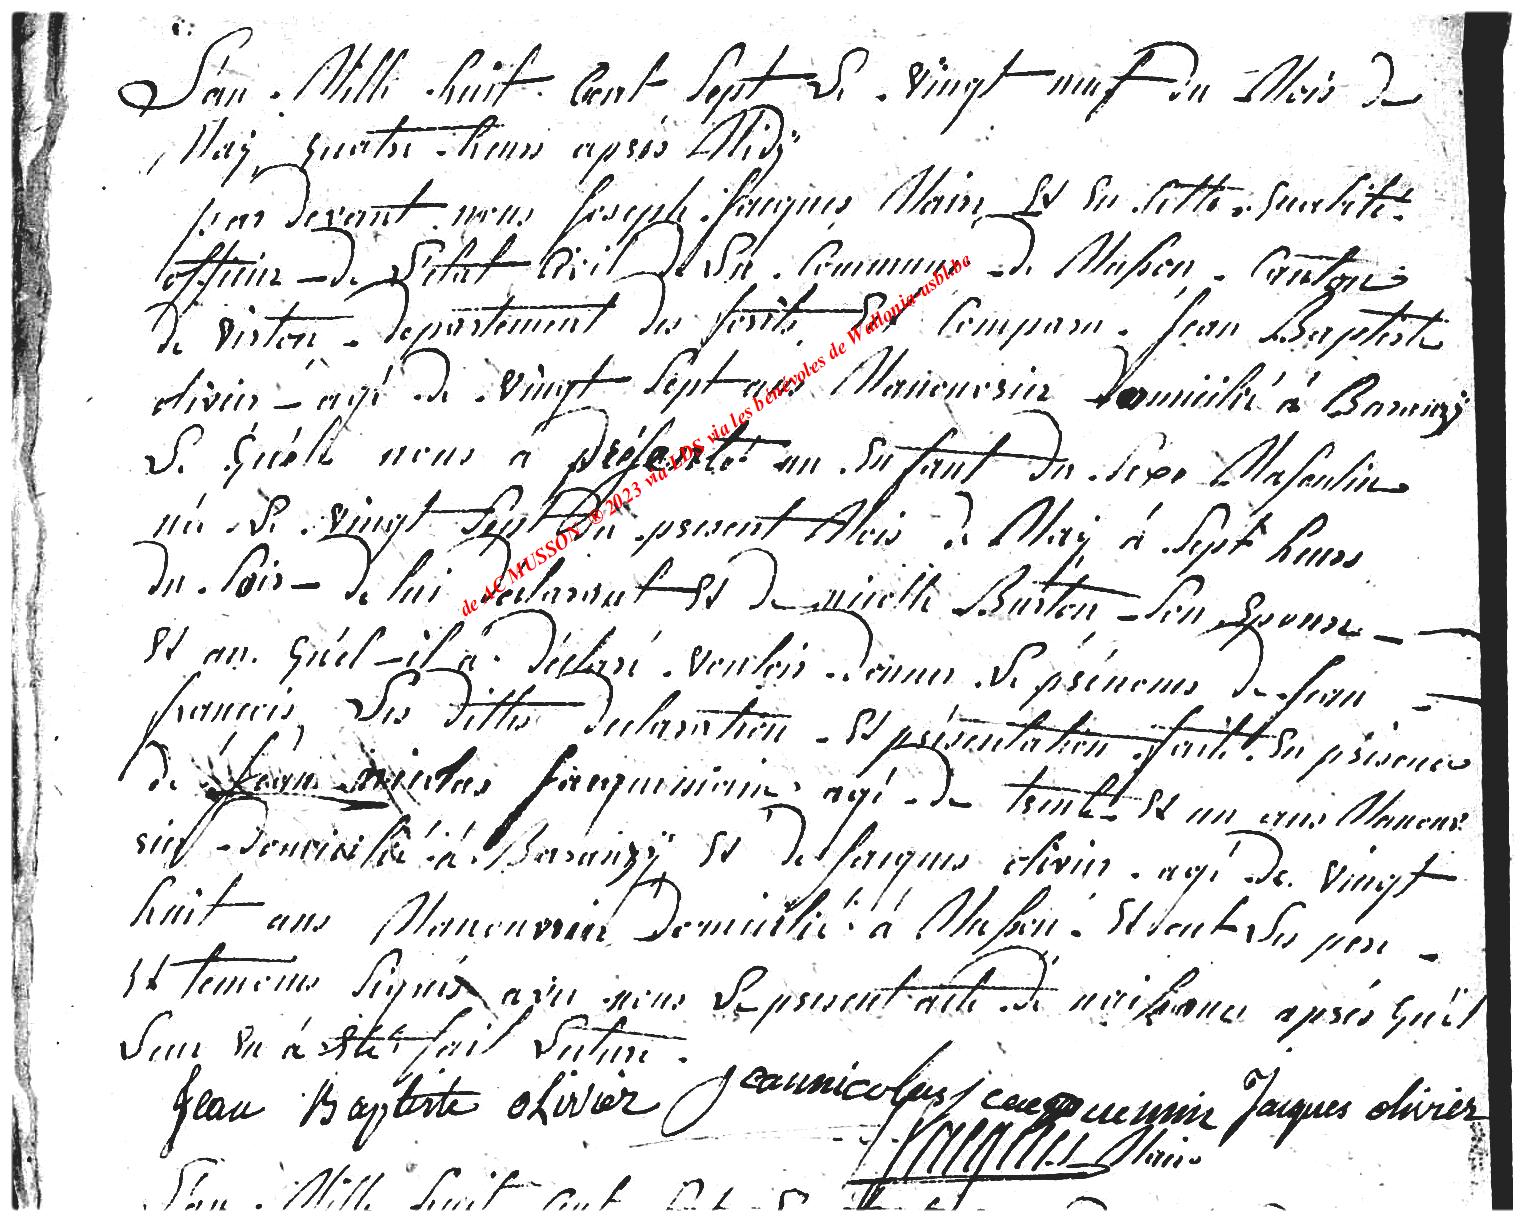 L'an Mille huit Cent Sept Le vingt neuf du Mois de
May quatre heurs aprés Midÿ
par devant nous Joseph Jacques Maire Et En Cette qualité
officier de L'etat Civil de La Commune de Musson Canton
de virton departement des forêts Est Comparu Jean Baptiste
olivier agé de vingt Sept ans Manouvrier Domicilié á Baranzÿ
Le quél nous a présenté un Enfant du Sexe Masculin
né Le vingt Sept Du present Mois de Maÿ á Sept heurs
du Soir de lui declarant Et de Burton Son Epouse
Et au quél il á déclaré vouloir donner Le prénoms de Jean
françois Les dittes declaration Et présentation fait En présence
de Jean nicolas Jacqueminin agé de trente Et un ans Manouv
rier domicilié á Baranzÿ Et de Jacques olivier agé de vingt
huit ans Manouvrier Domicilié á Musson Et ont Les pere
Et temoins Signés avec nous Le present acte de naissance aprés qu'el
Leur En á Eté fait Lecture.
Jean Baptiste olivier Jean nicolas Jacqueminin Jacques olivier
Jacques Maire
L'an Mille huit Cent Sept Le
de AC MUSSON ® 2023 via LDS via les bénévoles de Wallonia-asbl.be